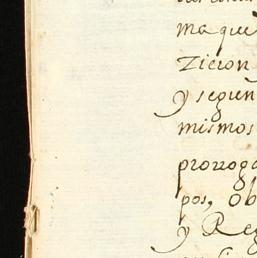 ma que
zicion
y seguen
mismos
prorroga
pos, ob
y Reg